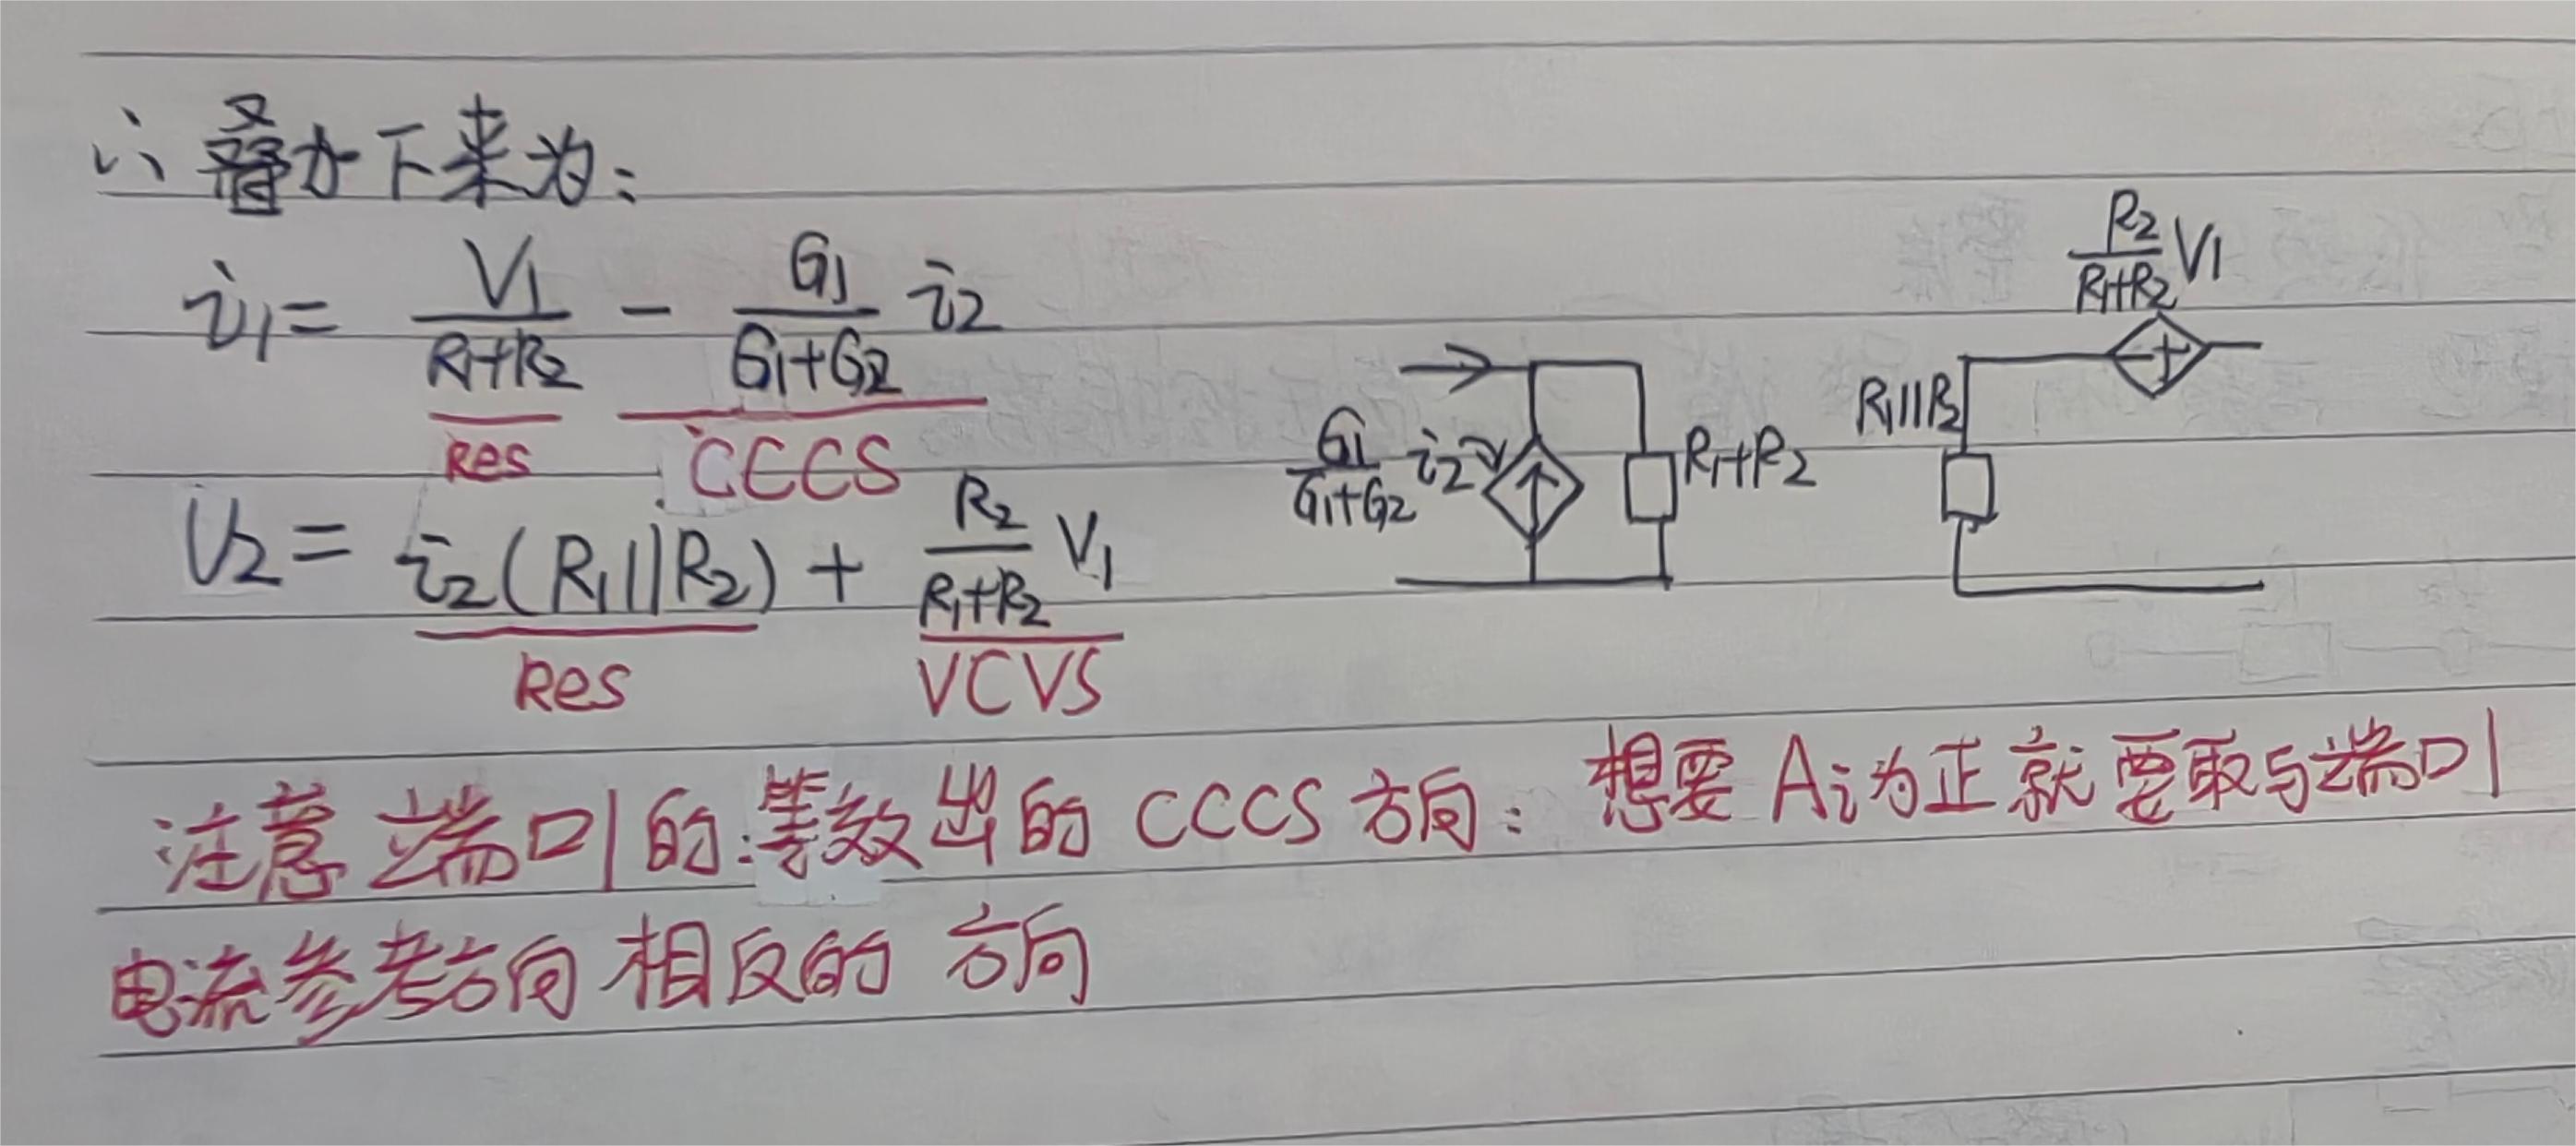 ∴ 叠加下来为:
i₁ = V₁/(R₁+R₂) - G₁/(G₁+G₂) i₂
Res CCCS
V₂ = i₂(R₁||R₂) + R₂/(R₁+R₂) V₁
Res VCVS
G₁/(G₁+G₂) i₂
R₁+R₂
R₁||R₂
R₂/(R₁+R₂) V₁
- +
注意 端口1的等效出的 CCCS 方向: 想要 Ai为正就要取与端口1
电流参考方向相反的 方向